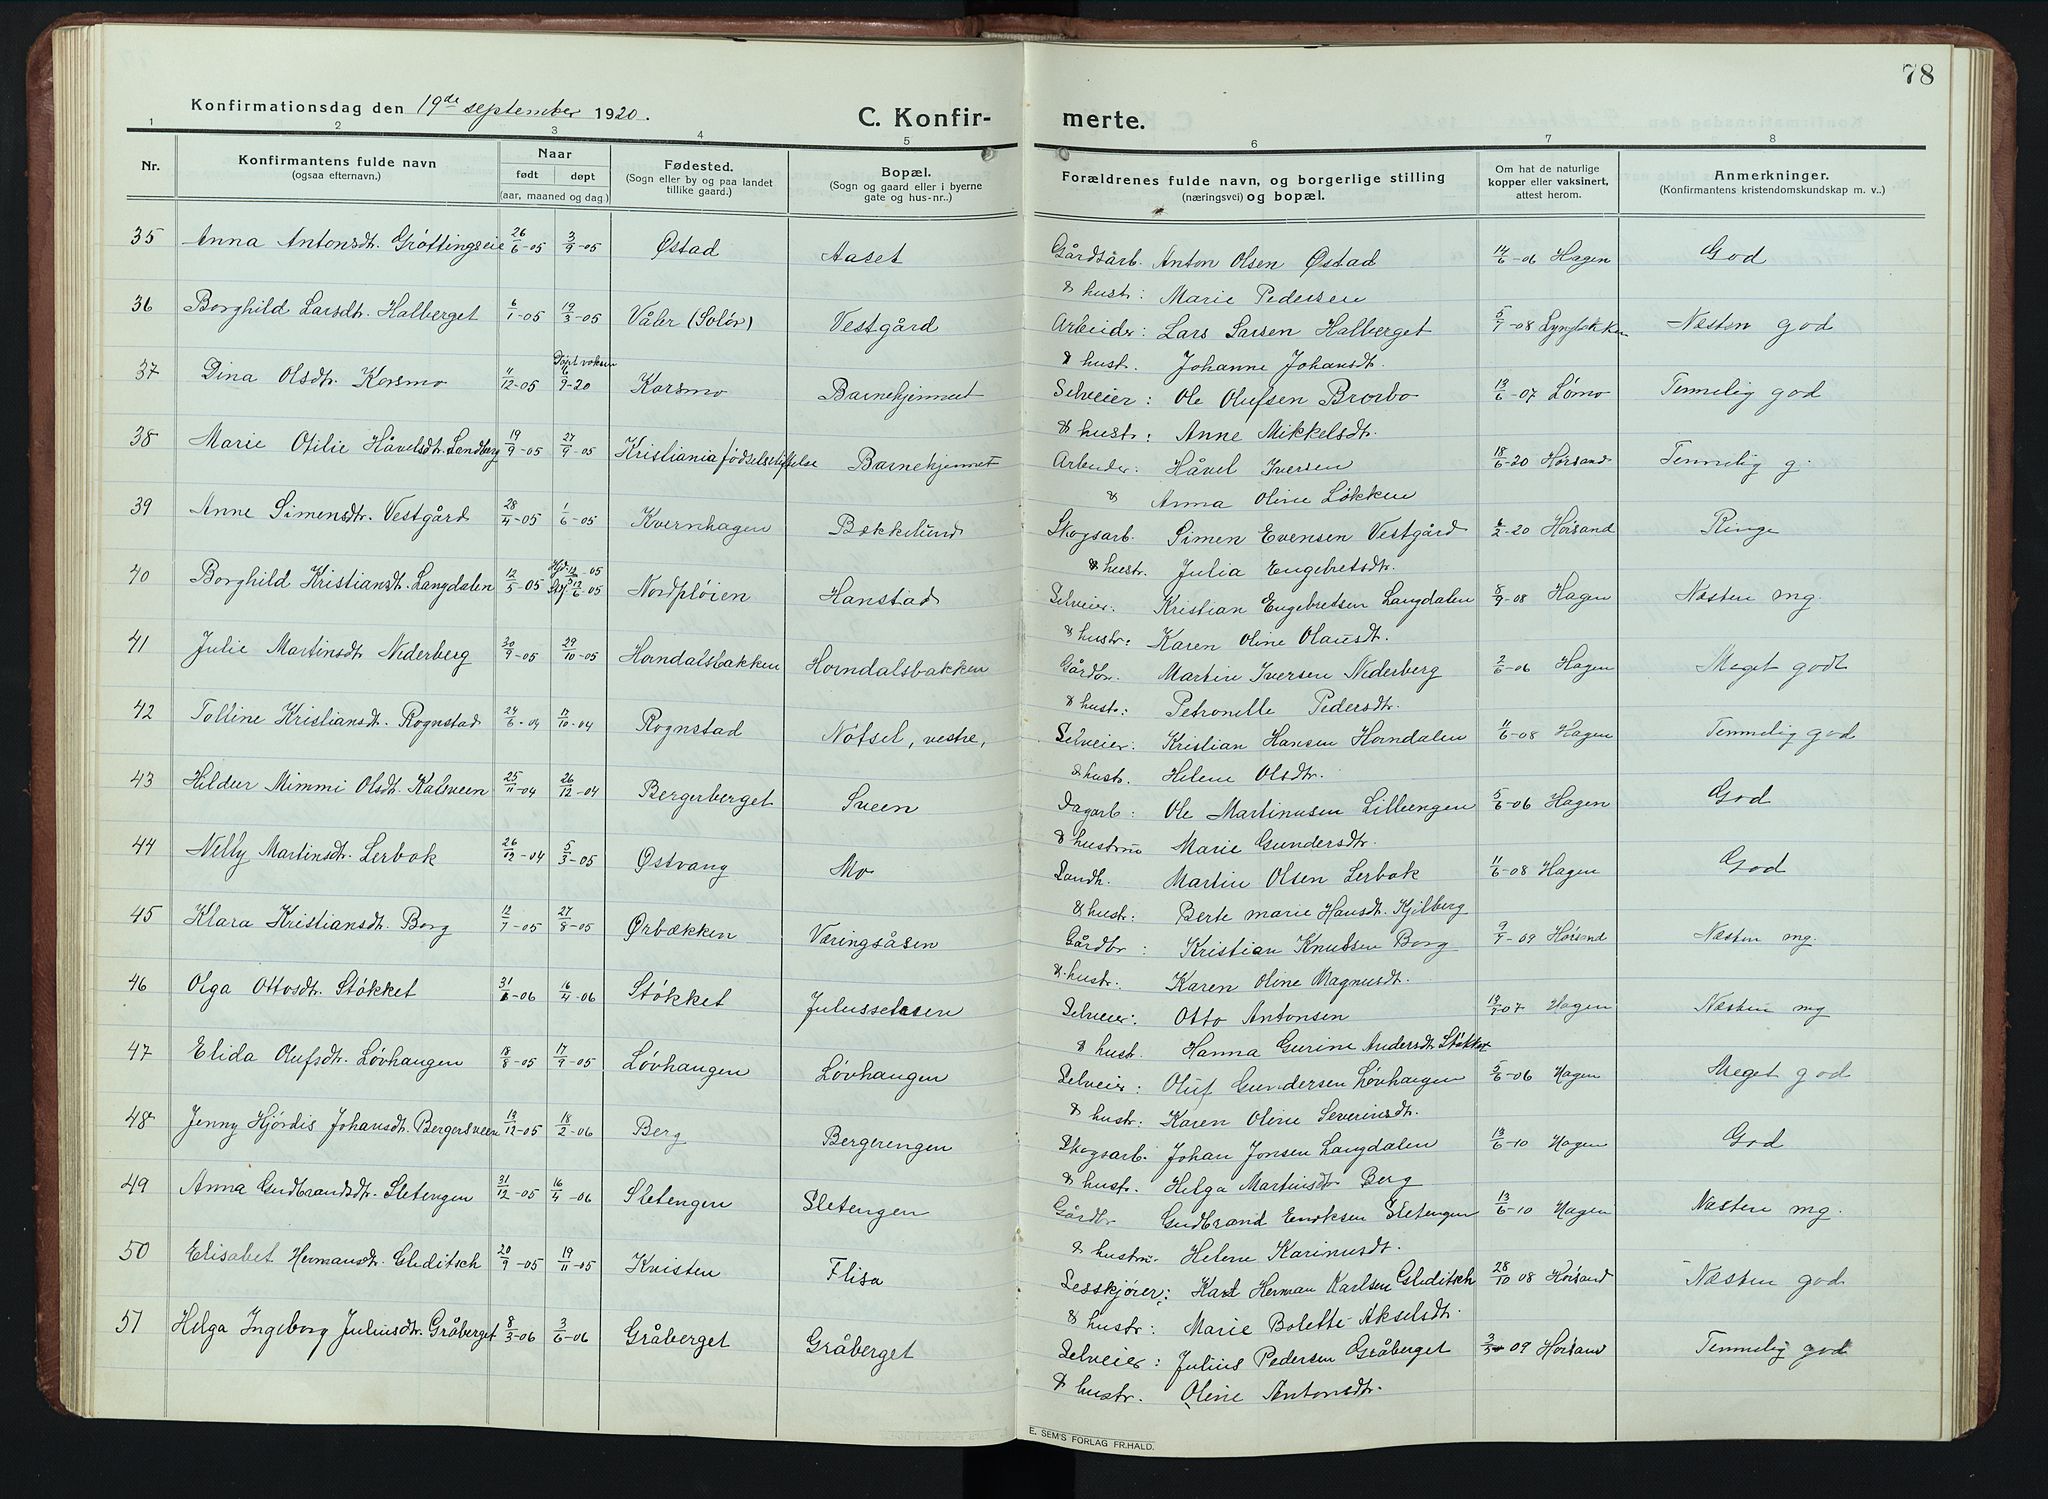 78
Konfirmationsdag den 19de september 1920.
C. Konfir- merte.
1 2 3 4 5 6 7 8
Nr.
Konfirmantens fulde navn
(ogsaa efternavn.)
Naar
født døpt
(aar, maaned og dag)
Fødested.
(Sogn eller by og paa landet
tillike gaard.)
Bopæl.
(Sogn og gaard eller i byerne
gate og hus-nr..)
Forældrenes fulde navn, og borgerlige stilling
(næringsvei) og bopæl.
Om hat de naturlige
kopper eller vaksinert,
attest herom.
Anmerkninger.
(Konfirmantens kristendomskundskap m. v..)
35 Anna Antonsdt. Grøttingseie 26/6-05 3/9-05 Østad Aaset Gårdsarb. Anton Olsen Østad 14/6-06 Hagen God
& hustr: Marie Pedersen
36 Borghild Larsdt. Halberget 6/1-05 19/3-05 Våler (Solør) Vestgård Arbeider: Lars Larsen Halberget 5/7-08 Næsten god
& hust. Johanne Johansdt.
37 Dina Olsdtr. Korsmo 11/12-05 Døpt voksen 9-20 Korsmo Barnehjemmet Selveier: Ole Olufsen Brorbo 13/6-07 Lømo Temmelig god
& hustr: Anne Mikkelsdt.
38 Marie Otilie Håvelsdt. Landberg 19/9-05 27/9-05 Kristiania fødselsstiftelse Barnehjemmet Arbeider: Håvel Iversen 18/6-20 Hørsand Temmelig g.
& Anna Oline Løkken
39 Anne Simensdtr. Vestgård 28/4-05 1/6-05 Kvernhagen Bækkelund Skogsarb. Simen Evensen Vestgård 6/2-20 Hørsand Ringe
& hustr. Julia Engebretsdtr.
40 Borghild Kristiansdt. Langdalen 12/5-05 Nordpløien Hanstad Selveier. Kristian Engebretsen Langdalen 8/9-08 Hagen Næsten mg.
& hustr: Karen Oline Olausdt.
41 Julie Martinsdt Nederberg 20/9-05 29/10-05 Horndalsbakken Horndalsbakken Gårdbr. Martin Iversen Nederberg 2/6-06 Hagen Meget godt
& hustr: Petronelle Pedersdtr.
42 Tolline Kristiansdt. Rognstad 24/6-04 17/10-04 Rognstad Nøtsel, vestre, Selveier. Kristian Hansen Horndalen 11/6-08 Hagen Temmelig god
& hustr. Helene Olsdtr.
43 Hildur Mimmi Olsdt. Kalsveen 25/11-04 26/12-04 Bergerberget Sveen Dagarb: Ole Martinusen Lilleengen 5/6-06 Hagen God
& hustru Marie Gundersdtr.
44 Nelly Martinsdtr. Lerbak 26/12-04 5/3-05 Østvang Mo Landh. Martin Olsen Lerbak 11/6-08 Hagen God
& hustr: Berte marie Hansdt. Kjilberg
45 Klara Kristiansdt. Borg 12/7-05 27/8-05 Ørbækken Væringsåsen Gårdbr: Kristian Knudsen Borg 9/9-09 Hørsand Næsten mg.
& hustr: Karen Oline Magnusdt.
46 Olga Ottosdt. Støkket 31/-06 16/4-06 Støkket Julussetasen Selveier: Otto Antonsen 07 Hagen Næsten mg
& hust. Hanna Gurine Andersdt. Støkket
47 Elida Olufsdtr. Løvhaugen 18/8-05 17/9-05 Løvhaugen Løvhaugen Selveier: Oluf Gundersen Løvhaugen 5/6-06 Hagen Meget god
& hustr: Karen Oline Severinsdt.
48 Jenny Hjørdis Johansdt. Bergersveen 13/12-05 18/2-06 Berg Bergerengen Skogsarb. Johan Jonsen Langdalen 13/6-10 Hagen God
& hustr. Helga Martinsdt Berg
49 Anna Gudbrandsdt. Sletengen 31/12-05 16/4-06 Sletengen Sletengen Gårdbr Gudbrand Eriksen Sletengen 13/6-10 Hagen Næsten mg.
& hustru. Helene Karinusdt.
50 Elisabet Hermansdt. Gleditsch 20/9-05 19/11-05 Kvisten Flisa Lesskjører: Karl Herman Karlsen Gleditsch 28/10 08 Hørsand Næsten god
& hustr: Marie Bolette Akselsdt.
51 Helga Ingeborg Juliusdt. Gråberget 8/3-06 3/6-06 Gråberget Gråberget Selveier: Julius Pedersen Gråberget 09 Hørsand Temmelig god
& hustr. Oline Antonsdt.
E. SEM'S FORLAG FR.HALD.